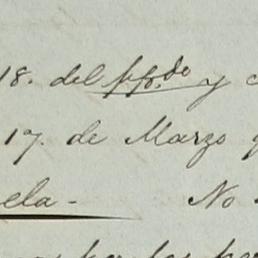 18. del ppdo y
17. de Marzo
ela - No